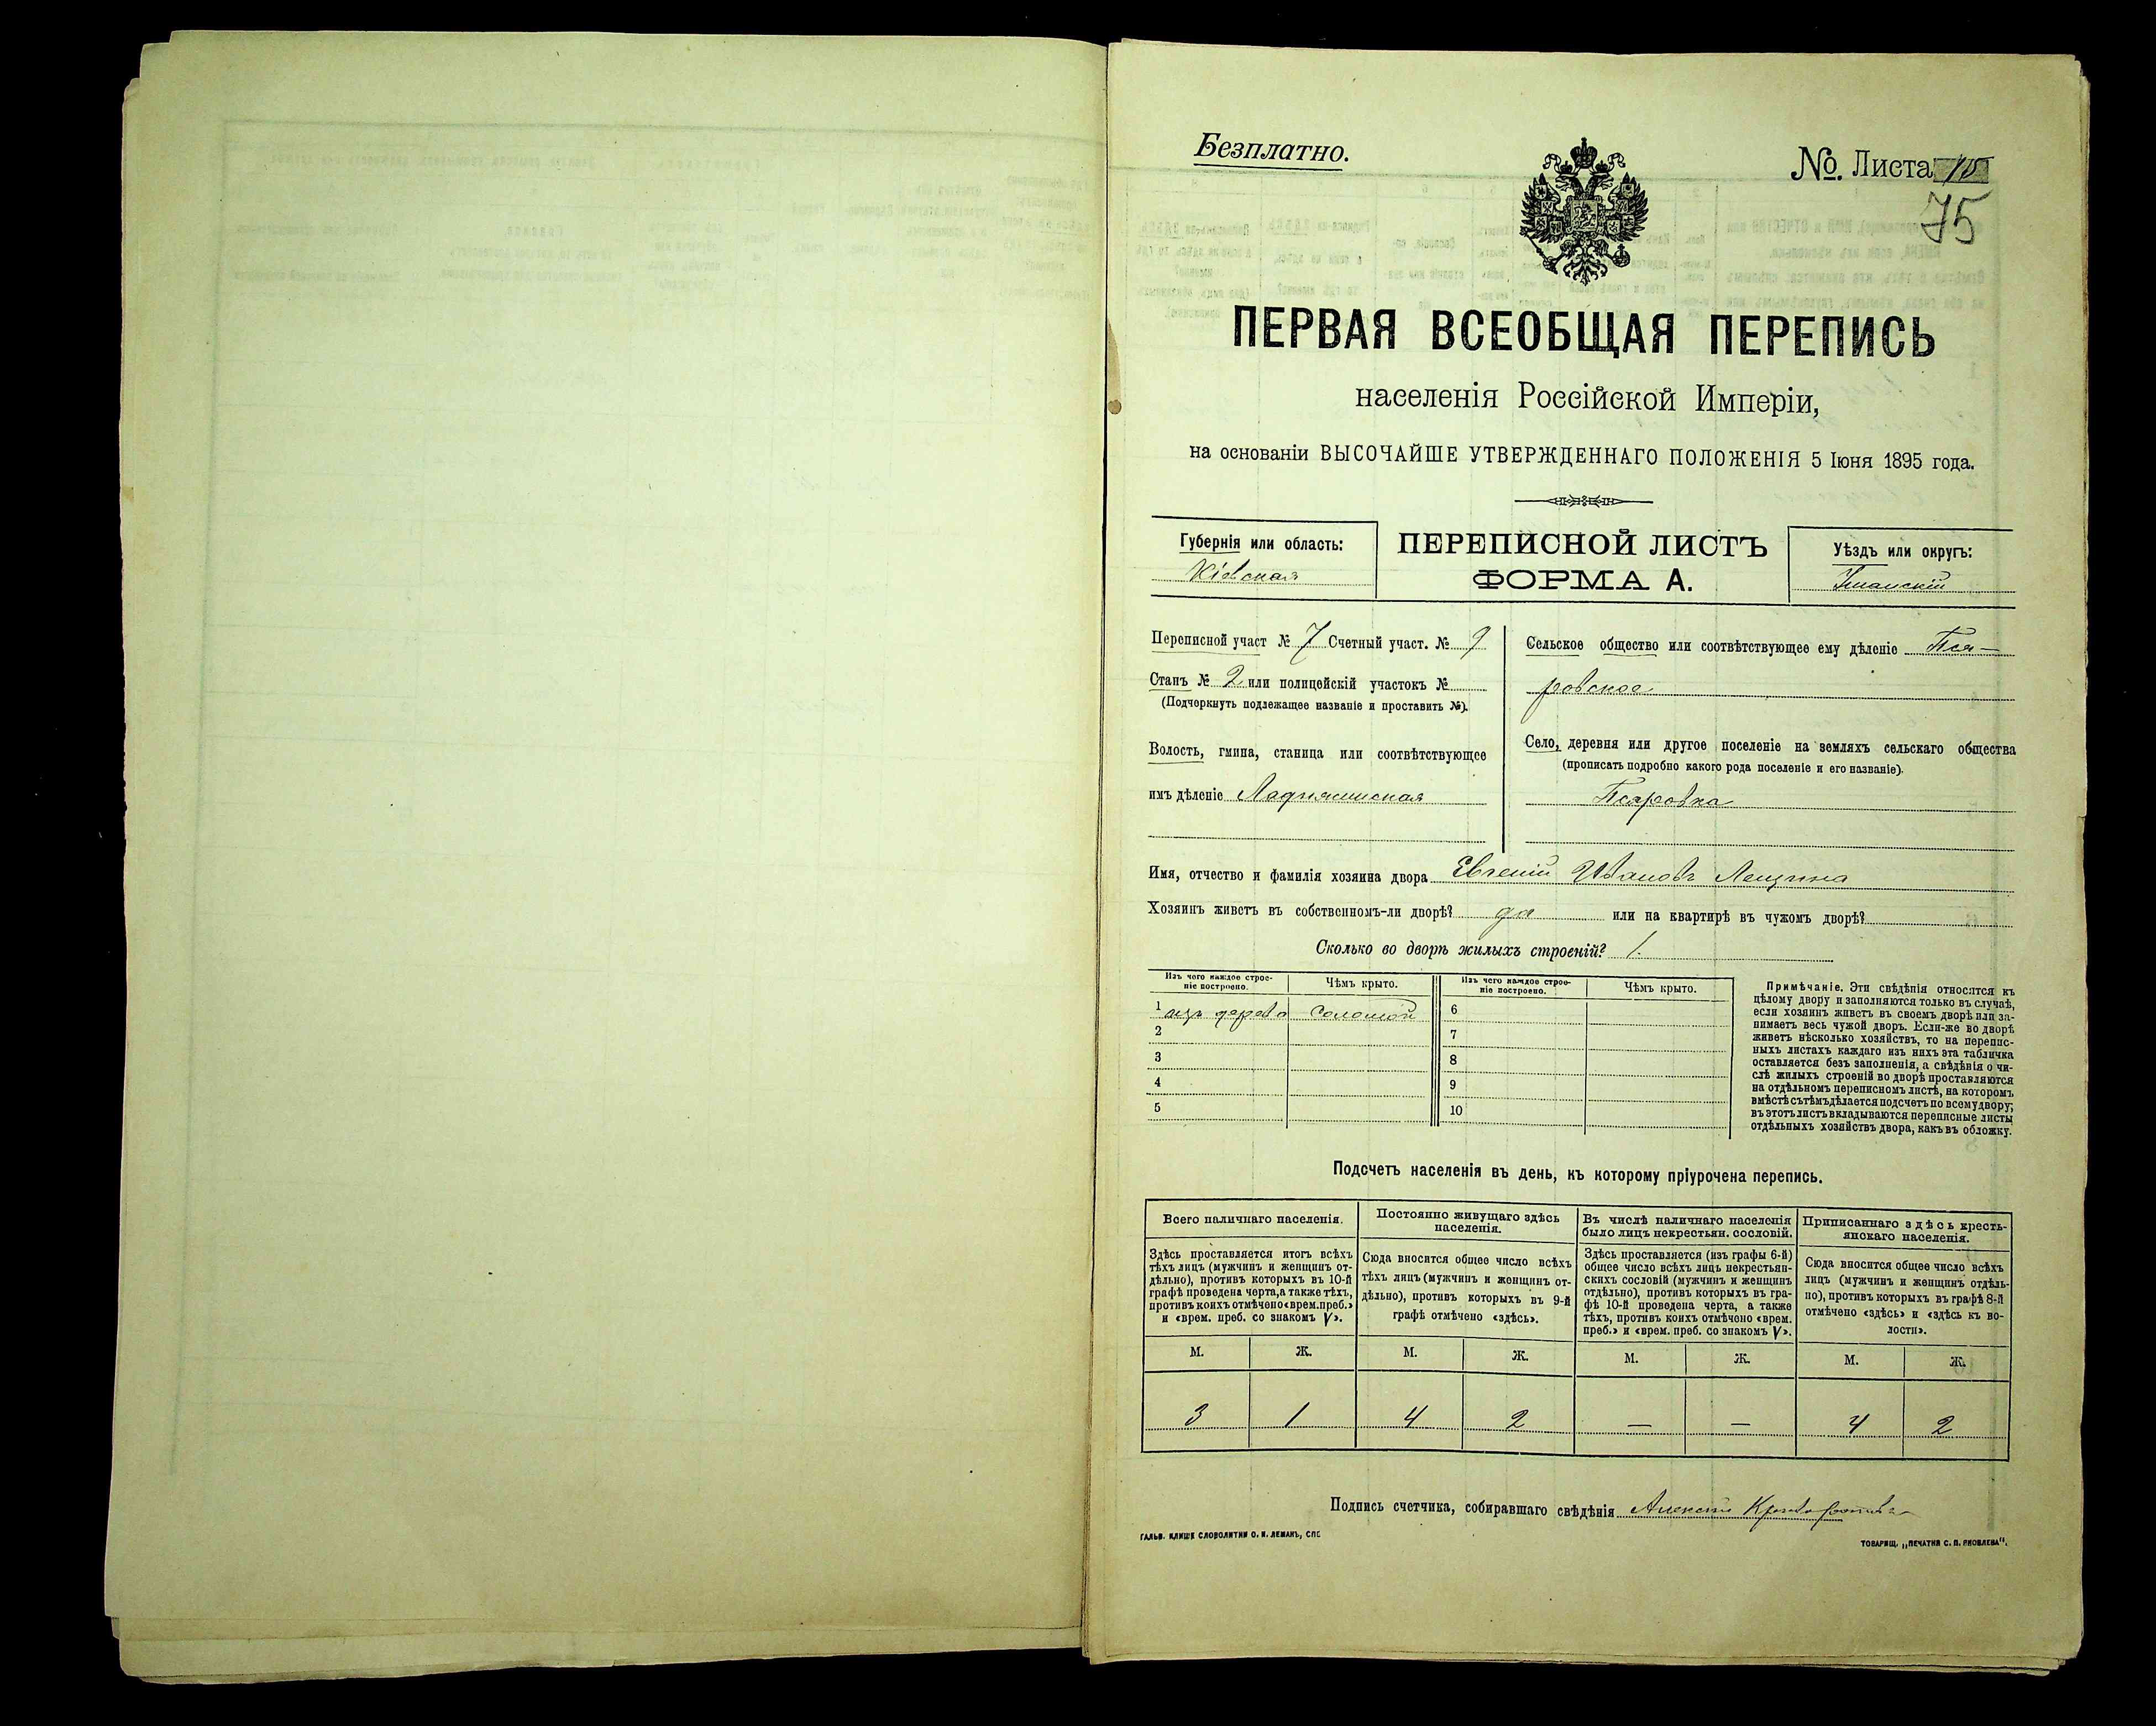 Безплатно.
№. Листа
75
ПЕРВАЯ ВСЕОБЩАЯ ПЕРЕПИСЬ
населенія Россійской Имперіи,
на основаніи ВЫСОЧАЙШЕ УТВЕРЖДЕННАГО ПОЛОЖЕНІЯ 5 Іюня 1895 года.
Губернія или область:
Кіевская
ПЕРЕПИСНОЙ ЛИСТЪ
ФОРМА А.
Уѣздъ или округъ:
Уманскій
Переписной участ № 7 Счетный участ. № 9
Станъ № 2 или полицейскій участокъ №
(Подчеркнуть подлежащее названіе и проставить №).
Волость, гмина, станица или соотвѣтствующее
имъ дѣленіе Ладыжинская
Сельское общество или соотвѣтствующее ему дѣленіе Пся-
ровское
Село, деревня или другое поселеніе на земляхъ сельскаго общества
(прописать подробно какого рода поселеніе и его названіе).
Псяровка
Имя, отчество и фамилія хозяина двора Евгеній Ивановъ Лещина
Хозяинъ живетъ въ собственномъ-ли дворѣ? да или на квартирѣ въ чужомъ дворѣ?
Сколько во дворѣ жилыхъ строеній? 1.
Изъ чего каждое строе-
ніе построено.
Чѣмъ крыто.
Изъ чего каждое строе-
ніе построено.
Чѣмъ крыто.
1 изъ дерева соломой 6
2 7
3 8
4 9
5 10
Примѣчаніе. Эти свѣдѣнія относятся къ
цѣлому двору и заполняются только въ случаѣ,
если хозяинъ живетъ въ своемъ дворѣ или за-
нимаетъ весь чужой дворъ. Если-же во дворѣ
живетъ нѣсколько хозяйствъ, то на перепис-
ныхъ листахъ каждаго изъ нихъ эта табличка
оставляется безъ заполненія, а свѣдѣнія о чи-
слѣ жилыхъ строеній во дворѣ проставляются
на отдѣльномъ переписномъ листѣ, на которомъ
вмѣстѣ съ тѣмъ дѣлается подсчетъ по всему двору;
въ этотъ листъ вкладываются переписные листы
отдѣльныхъ хозяйствъ двора, какъ въ обложку.
Подсчетъ населенія въ день, къ которому пріурочена перепись.
Всего наличнаго населенія.
Здѣсь проставляется итогъ всѣхъ
тѣхъ лицъ (мужчинъ и женщинъ от-
дѣльно), противъ которыхъ въ 10-й
графѣ проведена черта, а также тѣхъ,
противъ коихъ отмѣчено «врем. преб.»
и «врем. преб. со знакомъ V».
Постоянно живущаго здѣсь
населенія.
Сюда вносится общее число всѣхъ
тѣхъ лицъ (мужчинъ и женщинъ от-
дѣльно), противъ которыхъ въ 9-й
графѣ отмѣчено «здѣсь».
Въ числѣ наличнаго населенія
было лицъ некрестьян. сословій.
Здѣсь проставляется (изъ графы 6-й)
общее число всѣхъ лицъ некрестьян-
скихъ сословій (мужчинъ и женщинъ
отдѣльно), противъ которыхъ въ гра-
фѣ 10-й проведена черта, а также
тѣхъ, противъ коихъ отмѣчено «врем.
преб.» и «врем. преб. со знакомъ V».
Приписаннаго здѣсь кресть-
янскаго населенія.
Сюда вносится общее число всѣхъ
лицъ (мужчинъ и женщинъ отдѣль-
но), противъ которыхъ въ графѣ 8-й
отмѣчено «здѣсь» и «здѣсь къ во-
лости».
М. Ж. М. Ж. М. Ж. М. Ж.
3 1 4 2 — — 4 2
Подпись счетчика, собиравшаго свѣдѣнія Алексѣй
ГАЛЬВ. КЛИШЕ СЛОВОЛИТНИ О. И. ЛЕМАНЪ, СПБ
ТОВАРИЩ. „ПЕЧАТНЯ С. П. ЯКОВЛЕВА".